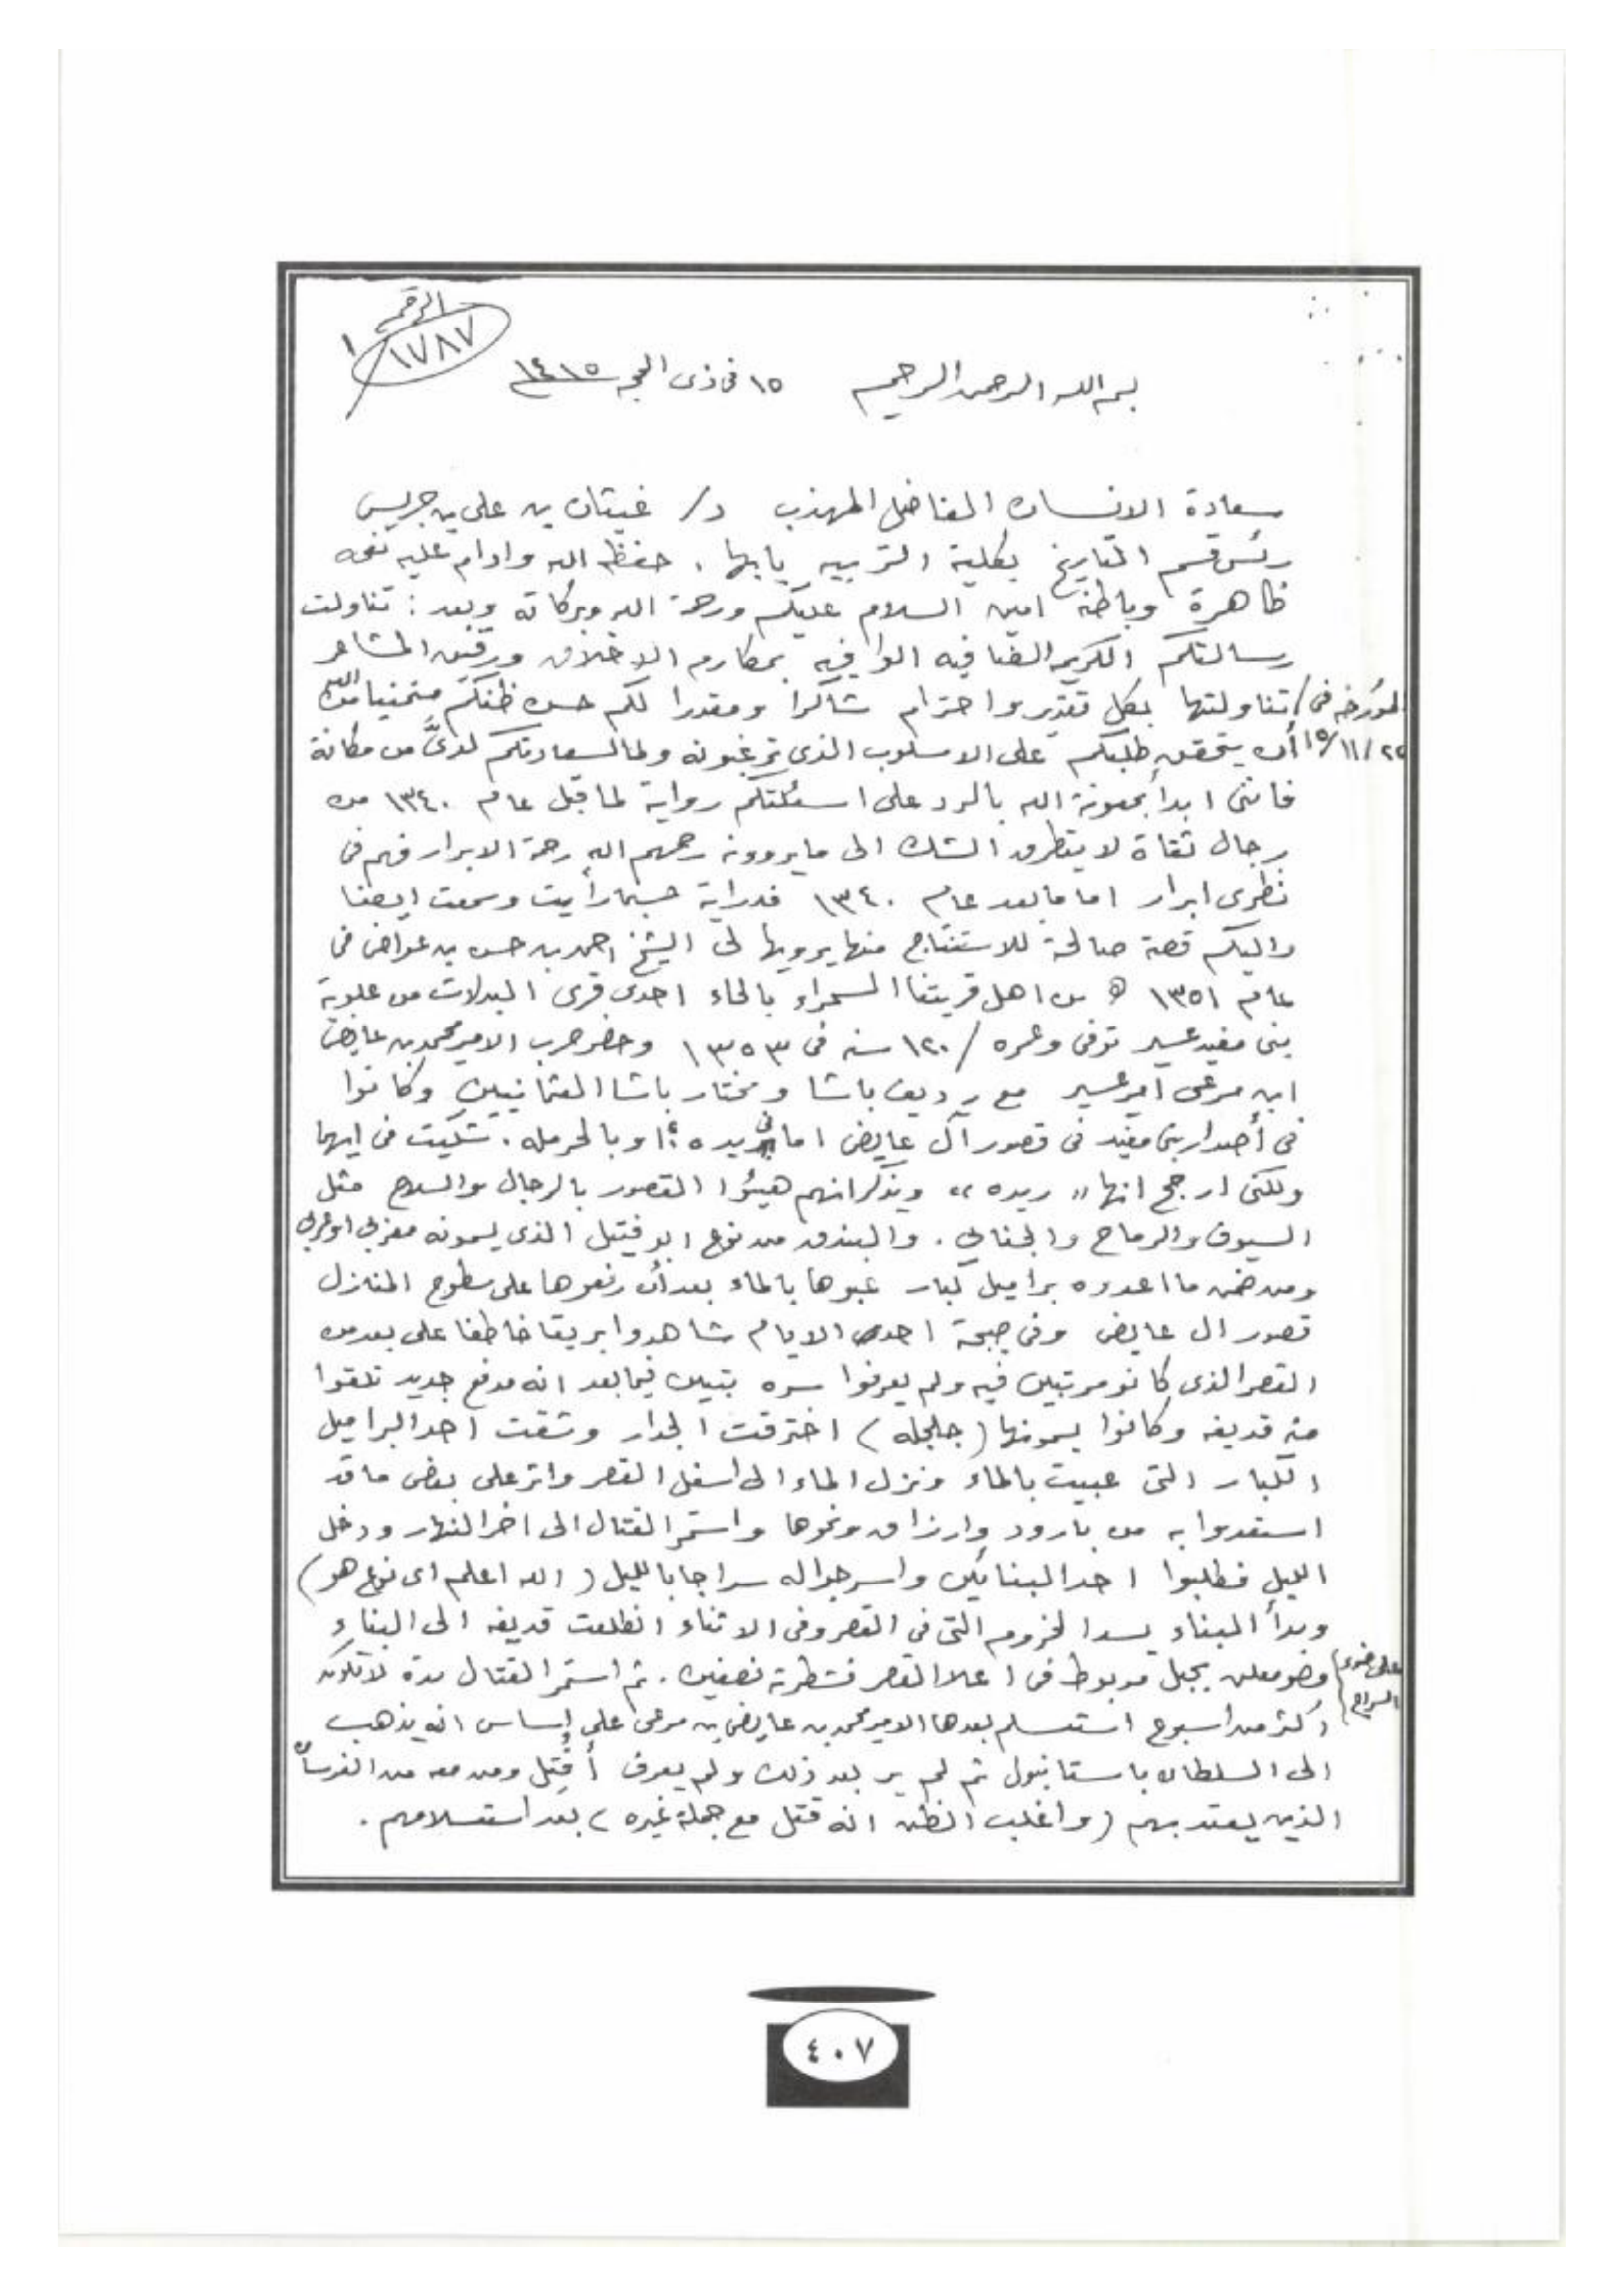 الرقم
١٧٨٧
١
بسم الله الرحمن الرحيم ١٥ في ذى الحجه ١٤١٥
سعادة الانسان الفاضل المهذب د/ غيثان بن على بن جريس
رئس قسم التاريخ بكلية التربيه بابها . حفظه الله وادام عليه نعمه
ظاهرة وباطنه امين السلام عليكم ورحمة الله وبركاته وبعد : تناولت
رسالتكم الكريمه الضافيه الوافيه بمكارم الاخلاق ورقيق المشاعر
المؤرخه في / تناولتها بكل تقدير واحترام شاكرا ومقدرا لكم حسن ظنكم متمنيا من الله
٢٢/١١/١٥ أن يتحقق طلبكم على الاسلوب الذى ترغبونه ولما لسعادتكم لدىَّ من مكانة
فانني ابدأ بمعونة الله بالرد على اسئلتكم رواية لما قبل عام ١٣٤٠ من
رجال ثقاة لا يتطرق الشك الى ما يروونه رحمهم الله رحمة الابرار فهم فى
نظرى ابرار اما ما بعد عام ١٣٤٠ فدراية حسبما رأيت وسمعت ايضا
واليكم قصة صالحة للاستنتاج منها يرويها لى الشيخ احمد بن حسن بن عواض فى
عام ١٣٥١ ه من اهل قريتنا السمراء بالحاء احدى قرى البدلات من علوية
بنى مغيد عسير توفى وعمره / ١٢٠ سنه فى ١٣٥٣ وحضر حرب الامير محمد بن عايض
ابن مرعى امير عسير مع رديف باشا ومختار باشا العثمانيين وكانوا
فى أصدار بنى مغيد فى قصور آل عايض اما فى ريده أو بالحرمله . شكيت فى ايهما
ولكنى ارجح انها " ريده " ويذكر انهم هيئوا القصور بالرجال والسلاح مثل
السيوف والرماح والجنابي . والبندق من نوع ابو فتيل الذى يسمونه مغربى او عربى
ومن ضمن ما اعدوه براميل كبار عبوها بالماء بعد أن رفعوها على سطوح المنازل
قصور ال عايض وفى صبحة احدى الايام شاهدوا بريقا خاطفا على بعد من
القصر الذى كانو مرتبين فيه ولم يعرفوا سره بتبين فيما بعد انه مدفع جديد تلقوا
منه قديفه وكانوا يسمونها (جلجله) اخترقت الجدار وشقت احد البراميل
الكبار التى عبيت بالماء ونزل الماء الى اسفل القصر واثر على بعض ما قد
استعدوا به من بارود وارزاق ونحوها واستمر القتال الى اخر النهار ودخل
الليل فطلبوا احد البنائين واسرجوا له سراجا بالليل ( الله اعلم اى نوع هو )
وبدأ البناء يسد الخروم التى فى القصر وفى الاثناء انطلقت قديفه الى البناء
على ضوى السراج } وهو معلق بحبل مربوط فى اعلا القصر فشطرته نصفين . ثم استمر القتال مدة لا تكون
اكثر من اسبوع استسلم بعدها الامير محمد بن عايض بن مرعى على إساس انه يذهب
الى السلطان باستانبول ثم لم ير بعد ذلك ولم يعرف أقُتِل ومن معه من الفرسان
الذين يعتد بهم (واغلب الظن انه قتل مع جملة غيره) بعد استسلامهم .
٤٠٧